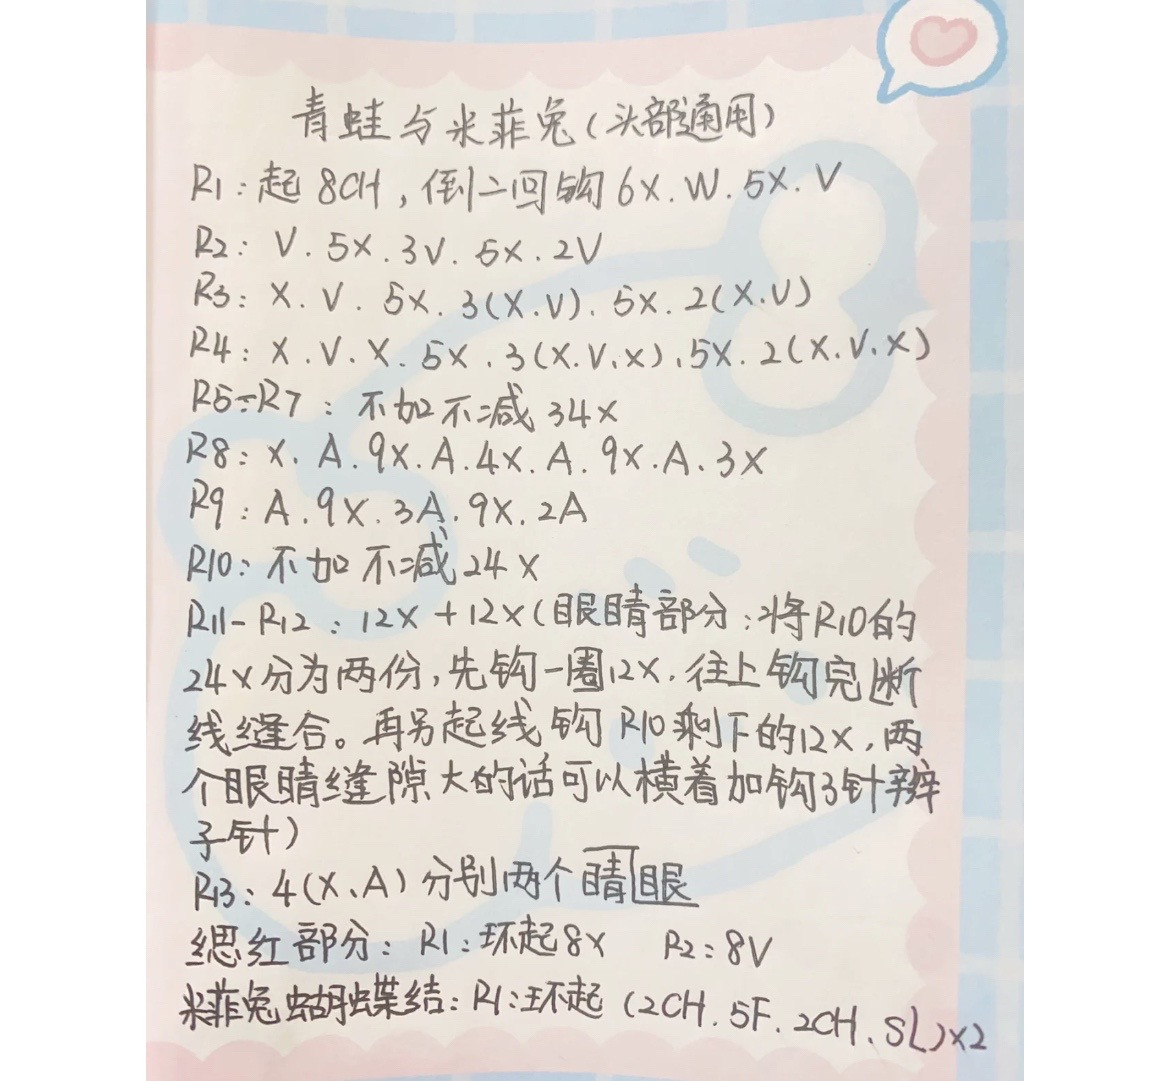 青蛙与米菲兔(头部通用)
R1:起8CH,倒二回钩6X.W.5X.V
R2:V.5X.3V.5X.2V
R3:X.V.5X.3(X.V).5X.2(X.V)
R4:X.V.X.5X.3(X.V.X).5X.2(X.V.X)
R5÷R7:不加不减34X
R8:X.A.9X.A.4X.A.9X.A.3X
R9:A.9X.3A.9X.2A
R10:不加不减24X
R11-R12:12X+12X(眼睛部分:将R10的
24X分为两份,先钩一圈12X.往上钩完断
线缝合。再另起线钩R10剩下的12X,两
个眼睛缝隙大的话可以横着加钩3针辫
子针)
R13:4(X、A)分别两个睛眼
腮红部分:R1:环起8X R2:8V
米菲兔蝴蝶结:R1:环起(2CH.5F.2CH.SL)×2